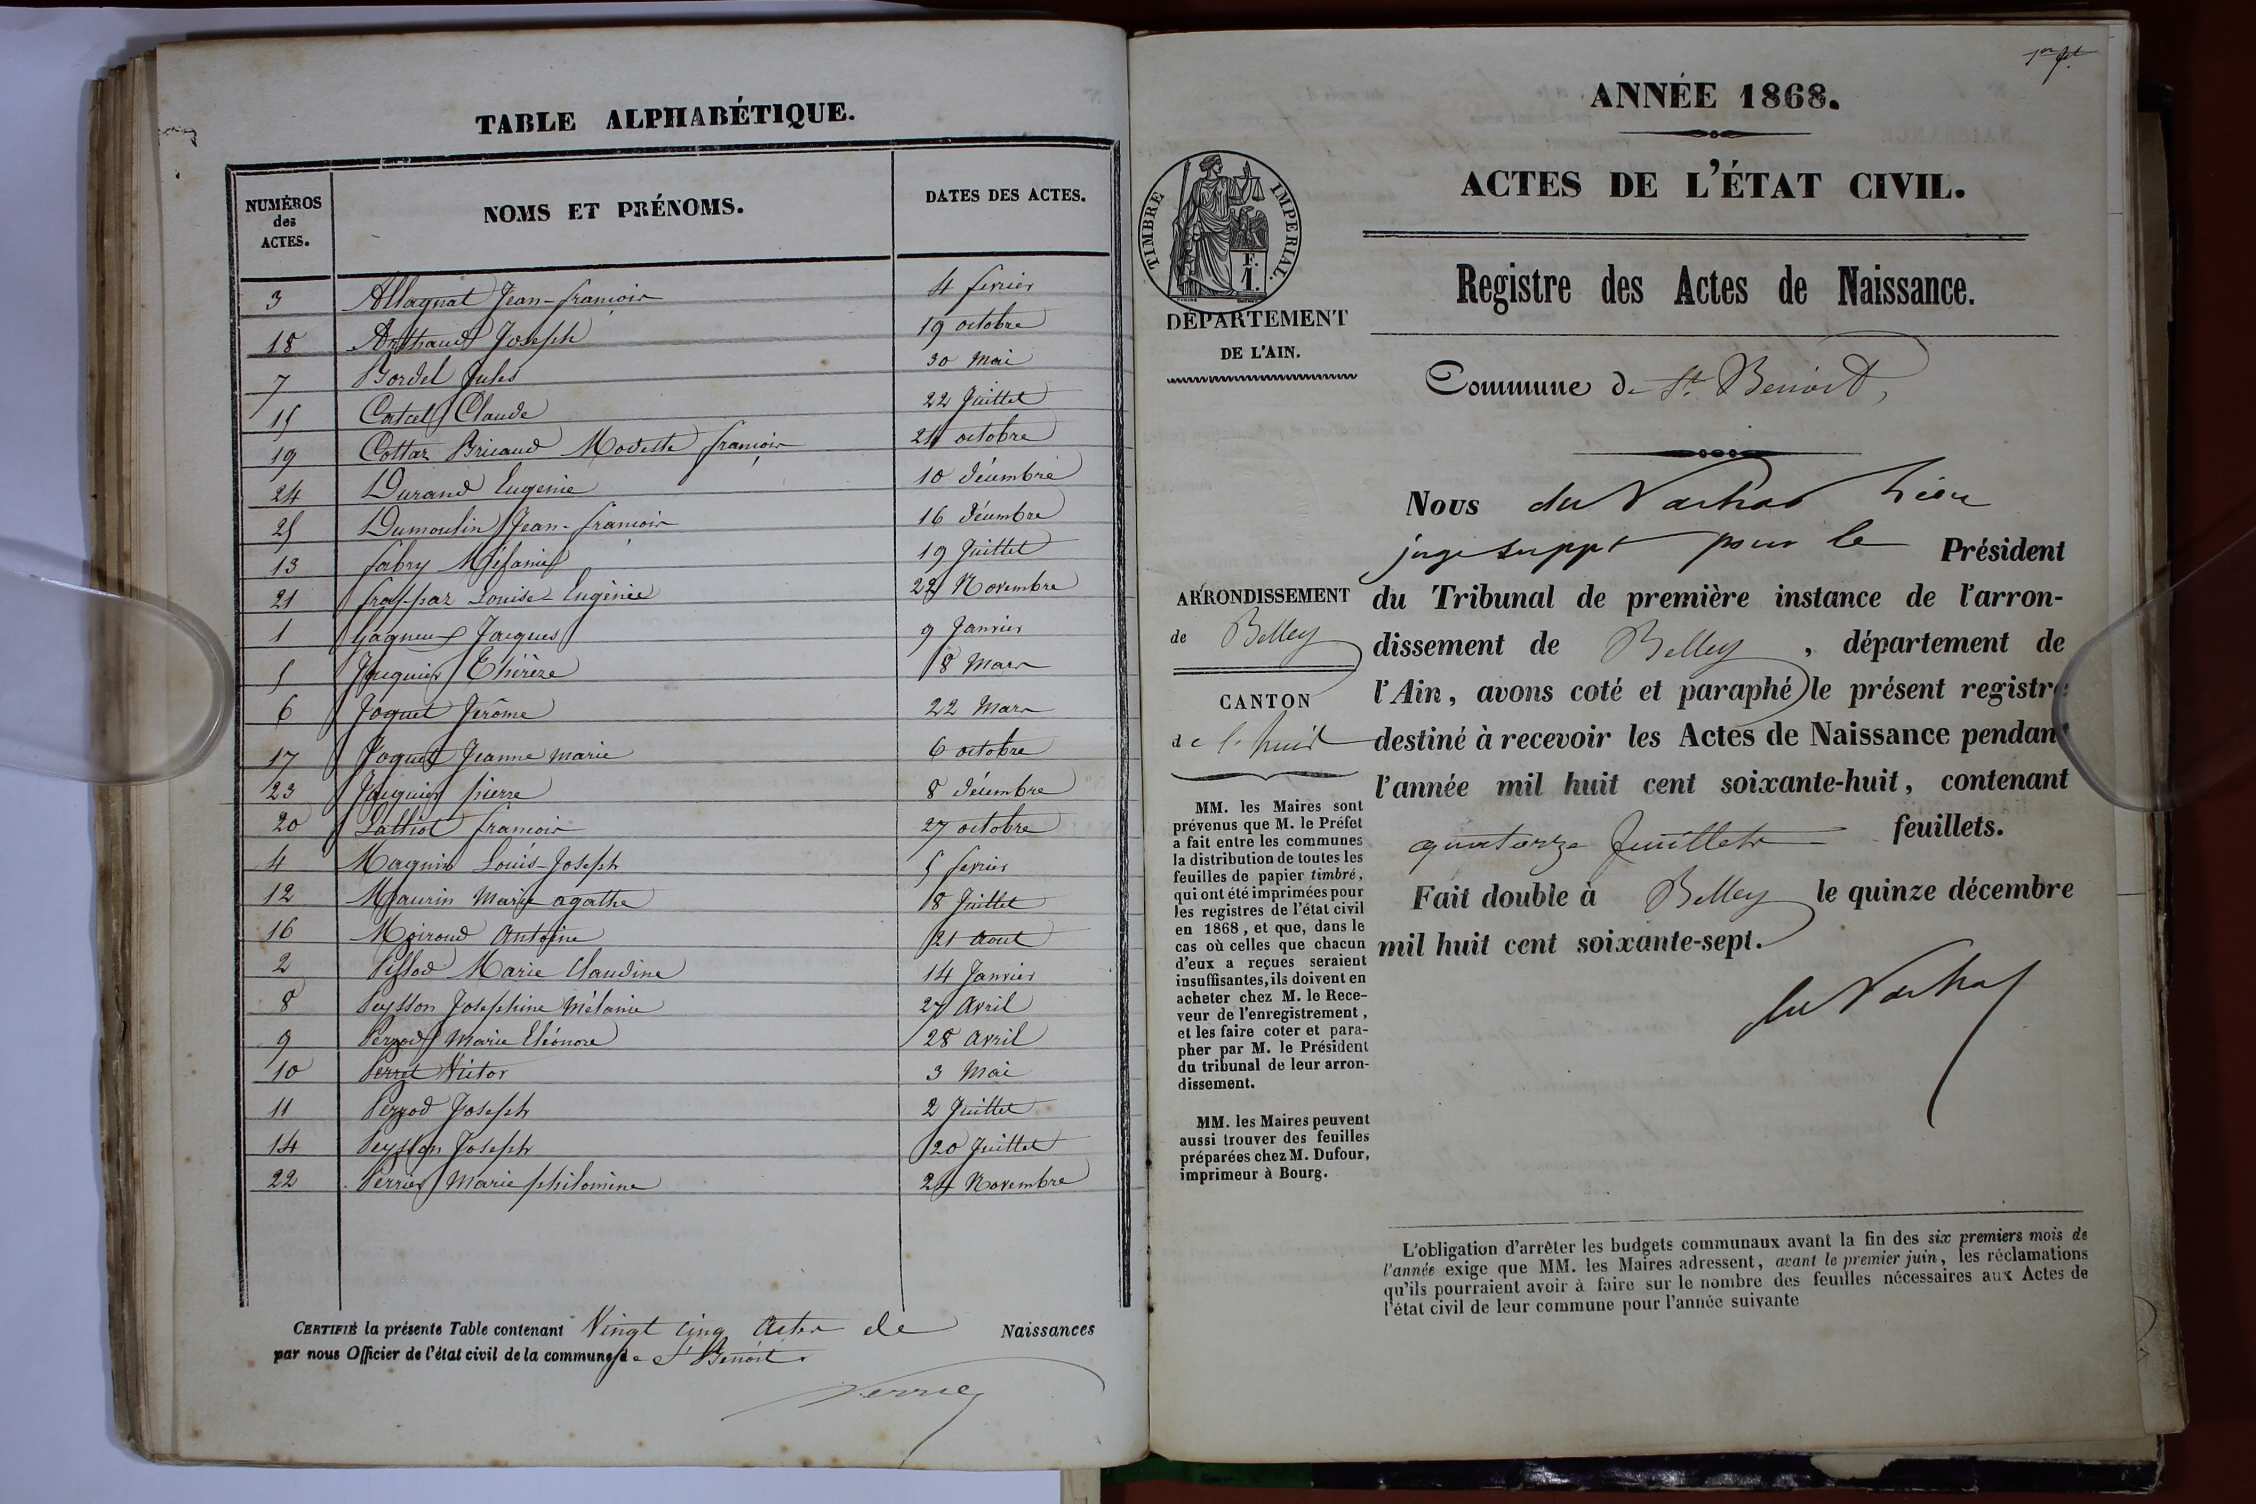 TABLE ALPHABÉTIQUE.
NUMÉROS des ACTES. NOMS ET PRÉNOMS. DATES DES ACTES.
3 Allagnat Jean-françois 4 fevrier
18 Anthaud Joseph 19 octobre
7 Bordel Jules 30 Mai
15 Catcel Claude 22 Juillet
19 Cottaz Bricaud Modeste françois 24 octobre
24 Durand Eugenie 10 décembre
25 Dumoulin Jean-françois 16 décembre
13 fabry Mélanie 19 Juillet
21 frappaz Louise-Eugénie 22 Novembre
1 Gagneux Jacques 9 Janvier
5 Jacquier Thérèze 8 Mars
6 Joguet Jerôme 22 Mars
17 Joguet Jeanne marie 6 octobre
23 Jacquier pierre 8 décembre
20 Lathiot françois 27 octobre
4 Magnin Louis-Joseph 5 fevrier
12 Maurin Marie agathe 8 Juillet
16 Moiroud Antoine 21 Aout
2 Marie Claudine 14 Janvier
8 Peysson Josephine Mélanie 27 Avril
9 Perrod Marie Eléonore 28 Avril
10 Perret Victor 3 Mai
11 Perrod Joseph 2 Juillet
14 Peysson Joseph 20 Juillet
22 Perrier Marie philomine 24 Novembre
CERTIFIÉ la présente Table contenant Vingt cinq Actes de Naissances
par nous Officier de l'état civil de la commune de St Benoit
Perrier
1er ft
ANNÉE 1868.
ACTES DE L'ÉTAT CIVIL.
TIMBRE IMPERIAL.
F.
1.
DÉPARTEMENT
DE L'AIN.
Registre des Actes de Naissance.
Commune de St. Benoit,
Nous du
juge suppt pour le Président
du Tribunal de première instance de l'arron-
dissement de Belley, département de
l'Ain, avons coté et paraphé le présent registre
destiné à recevoir les Actes de Naissance pendant
l'année mil huit cent soixante-huit, contenant
quatorze feuillets feuillets.
Fait double à Belley le quinze décembre
mil huit cent soixante-sept.
ARRONDISSEMENT
de Belley
CANTON
de l'huis
MM. les Maires sont
prévenus que M. le Préfet
a fait entre les communes
la distribution de toutes les
feuilles de papier timbré,
qui ont été imprimées pour
les registres de l'état civil
en 1868, et que, dans le
cas où celles que chacun
d'eux a reçues seraient
insuffisantes, ils doivent en
acheter chez M. le Rece-
veur de l'enregistrement,
et les faire coter et para-
pher par M. le Président
du tribunal de leur arron-
dissement.
MM. les Maires peuvent
aussi trouver des feuilles
préparées chez M. Dufour,
imprimeur à Bourg.
L'obligation d'arrêter les budgets communaux avant la fin des six premiers mois de
l'année exige que MM. les Maires adressent, avant le premier juin, les réclamations
qu'ils pourraient avoir à faire sur le nombre des feuilles nécessaires aux Actes de
l'état civil de leur commune pour l'année suivante